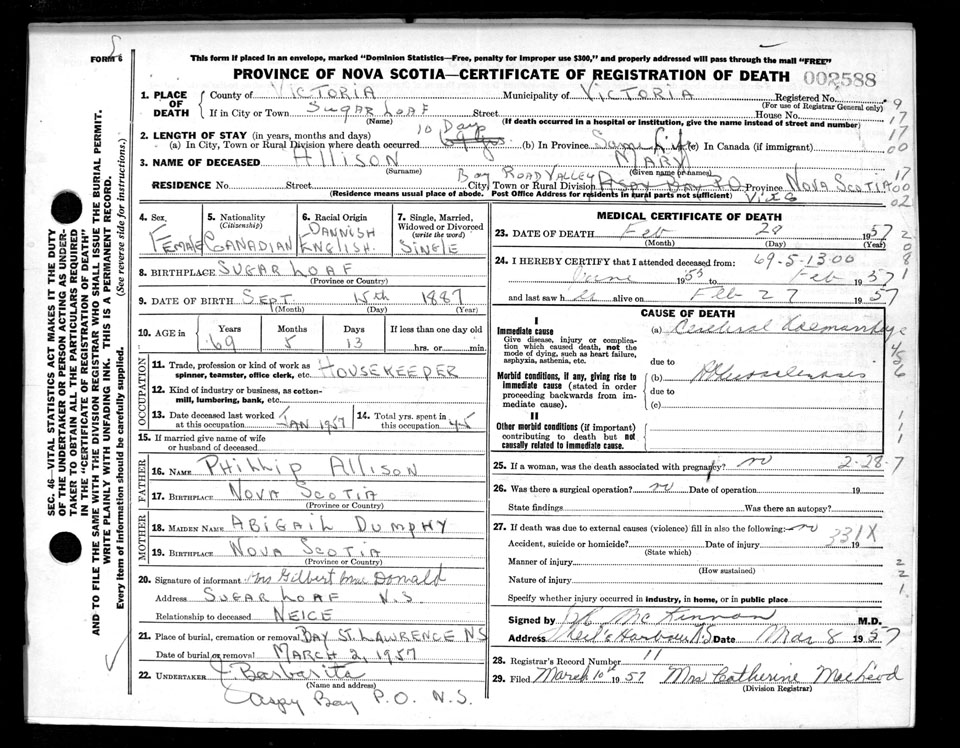 FORM 6
This form if placed in an envelope, marked "Dominion Statistics—Free, penalty for improper use $300," and properly addressed will pass through the mail "FREE"
PROVINCE OF NOVA SCOTIA—CERTIFICATE OF REGISTRATION OF DEATH 002588
SEC. 46—VITAL STATISTICS ACT MAKES IT THE DUTY OF THE UNDERTAKER OR PERSON ACTING AS UNDERTAKER TO OBTAIN ALL THE PARTICULARS REQUIRED IN THE "CERTIFICATE OF REGISTRATION OF DEATH" AND TO FILE THE SAME WITH THE DIVISION REGISTRAR WHO SHALL ISSUE THE BURIAL PERMIT.
WRITE PLAINLY WITH UNFADING INK. THIS IS A PERMANENT RECORD.
Every item of information should be carefully supplied. (See reverse side for instructions.)
1. PLACE OF DEATH County of VICTORIA Municipality of VICTORIA Registered No.
(For use of Registrar General only)
If in City or Town SUGAR LOAF Street House No.
(Name) (If death occurred in a hospital or institution, give the name instead of street and number)
2. LENGTH OF STAY (in years, months and days)
(a) In City, Town or Rural Division where death occurred 10 Days (b) In Province Same Life (c) In Canada (if immigrant)
3. NAME OF DECEASED ALLISON MARY
(Surname) (Given name or names)
RESIDENCE No. Street BAY ROAD VALLEY City, Town or Rural Division ASPY BAY P.O. Province NOVA SCOTIA
(Residence means usual place of abode. Post Office Address for residents in rural parts not sufficient) VIXG
4. Sex, FEMALE
5. Nationality (Citizenship) CANADIAN
6. Racial Origin DANNISH ENGLISH.
7. Single, Married, Widowed or Divorced (write the word) SINGLE
8. BIRTHPLACE SUGAR LOAF
(Province or Country)
9. DATE OF BIRTH SEPT. 15th 1887
(Month) (Day) (Year)
10. AGE in Years Months Days If less than one day old
69 5 13 hrs. or min.
OCCUPATION
11. Trade, profession or kind of work as spinner, teamster, office clerk, etc. HOUSEKEEPER
12. Kind of industry or business, as cotton-mill, lumbering, bank, etc.
13. Date deceased last worked at this occupation JAN 1957
14. Total yrs. spent in this occupation 45
15. If married give name of wife or husband of deceased
FATHER
16. NAME PHILLIP ALLISON
17. BIRTHPLACE NOVA SCOTIA
(Province or Country)
MOTHER
18. MAIDEN NAME ABIGAIL DUMPHY
19. BIRTHPLACE NOVA SCOTIA
(Province or Country)
20. Signature of informant Mrs Gilbert Mac Donald
Address SUGAR LOAF N.S
Relationship to deceased NEICE
21. Place of burial, cremation or removal BAY ST. LAWRENCE NS
Date of burial or removal MARCH 2, 1957
22. UNDERTAKER J Barbarita
(Name and address)
Aspy Bay P.O. N.S.
MEDICAL CERTIFICATE OF DEATH
23. DATE OF DEATH Feb 28 1957
(Month) (Day) (Year)
24. I HEREBY CERTIFY that I attended deceased from: 69-5-13 00
June 1955 to Feb 1957
and last saw her alive on Feb 27 1957
CAUSE OF DEATH
I
Immediate cause (a) Cerebral Haemorrhage
Give disease, injury or complication which caused death, not the mode of dying, such as heart failure, asphyxia, asthenia, etc.
due to
Morbid conditions, if any, giving rise to immediate cause (stated in order proceeding backwards from immediate cause). (b)
due to
(c)
II
Other morbid conditions (if important) contributing to death but not causally related to immediate cause.
25. If a woman, was the death associated with pregnancy? no 2-28-7
26. Was there a surgical operation? no Date of operation 19
State findings Was there an autopsy?
27. If death was due to external causes (violence) fill in also the following: no
Accident, suicide or homicide? Date of injury 19 331X
(State which)
Manner of injury
(How sustained)
Nature of injury
Specify whether injury occurred in industry, in home, or in public place
Signed by Mc Kinnon M.D.
Address Neil's Harbour N.S Date Mar 8 1957
28. Registrar's Record Number 11
29. Filed March 10th 1957 Mrs Catherine MacLeod
(Division Registrar)